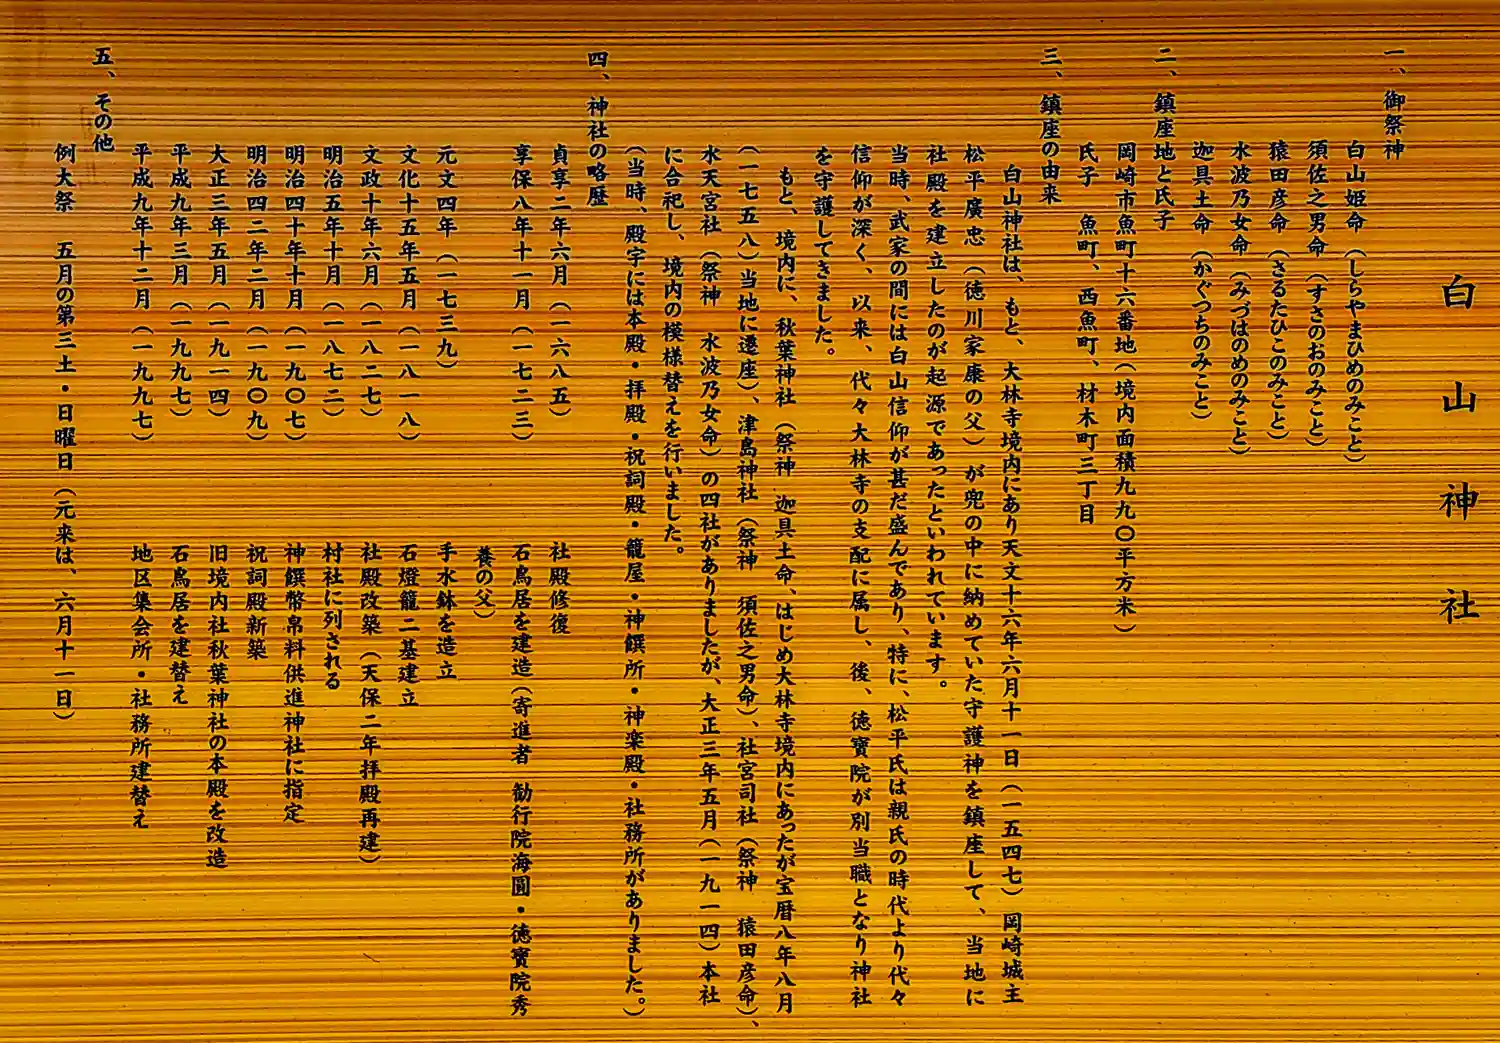 白山神社
一、御祭神
白山姫命（しらやまひめのみこと）
須佐之男命（すさのおのみこと）
猿田彦命（さるたひこのみこと）
水波乃女命（みづはのめのみこと）
迦具土命（かぐつちのみこと）
二、鎮座地と氏子
岡崎市魚町十六番地（境内面積九九〇平方米）
氏子　魚町、西魚町、材木町三丁目
三、鎮座の由来
白山神社は、もと、大林寺境内にあり天文十六年六月十一日（一五四七）岡崎城主
松平廣忠（徳川家康の父）が兜の中に納めていた守護神を鎮座して、当地に
社殿を建立したのが起源であったといわれています。
当時、武家の間には白山信仰が甚だ盛んであり、特に、松平氏は親氏の時代より代々
信仰が深く、以来、代々大林寺の支配に属し、後、徳寶院が別当職となり神社
を守護してきました。
もと、境内に、秋葉神社（祭神　迦具土命、はじめ大林寺境内にあったが宝暦八年八月
（一七五八）当地に遷座）、津島神社（祭神　須佐之男命）、社宮司社（祭神　猿田彦命）、
水天宮社（祭神　水波乃女命）の四社がありましたが、大正三年五月（一九一四）本社
に合祀し、境内の模様替えを行いました。
（当時、殿宇には本殿・拝殿・祝詞殿・籠屋・神饌所・神楽殿・社務所がありました。）
四、神社の略歴
貞享二年六月（一六八五）　社殿修復
享保八年十一月（一七二三）　石鳥居を建造（寄進者　勧行院海圓・徳寶院秀
養の父）
元文四年（一七三九）　手水鉢を造立
文化十五年五月（一八一八）　石燈籠二基建立
文政十年六月（一八二七）　社殿改築（天保二年拝殿再建）
明治五年十月（一八七二）　村社に列される
明治四十年十月（一九〇七）　神饌幣帛料供進神社に指定
明治四二年二月（一九〇九）　祝詞殿新築
大正三年五月（一九一四）　旧境内社秋葉神社の本殿を改造
平成九年三月（一九九七）　石鳥居を建替え
平成九年十二月（一九九七）　地区集会所・社務所建替え
五、その他
例大祭　五月の第三土・日曜日（元来は、六月十一日）